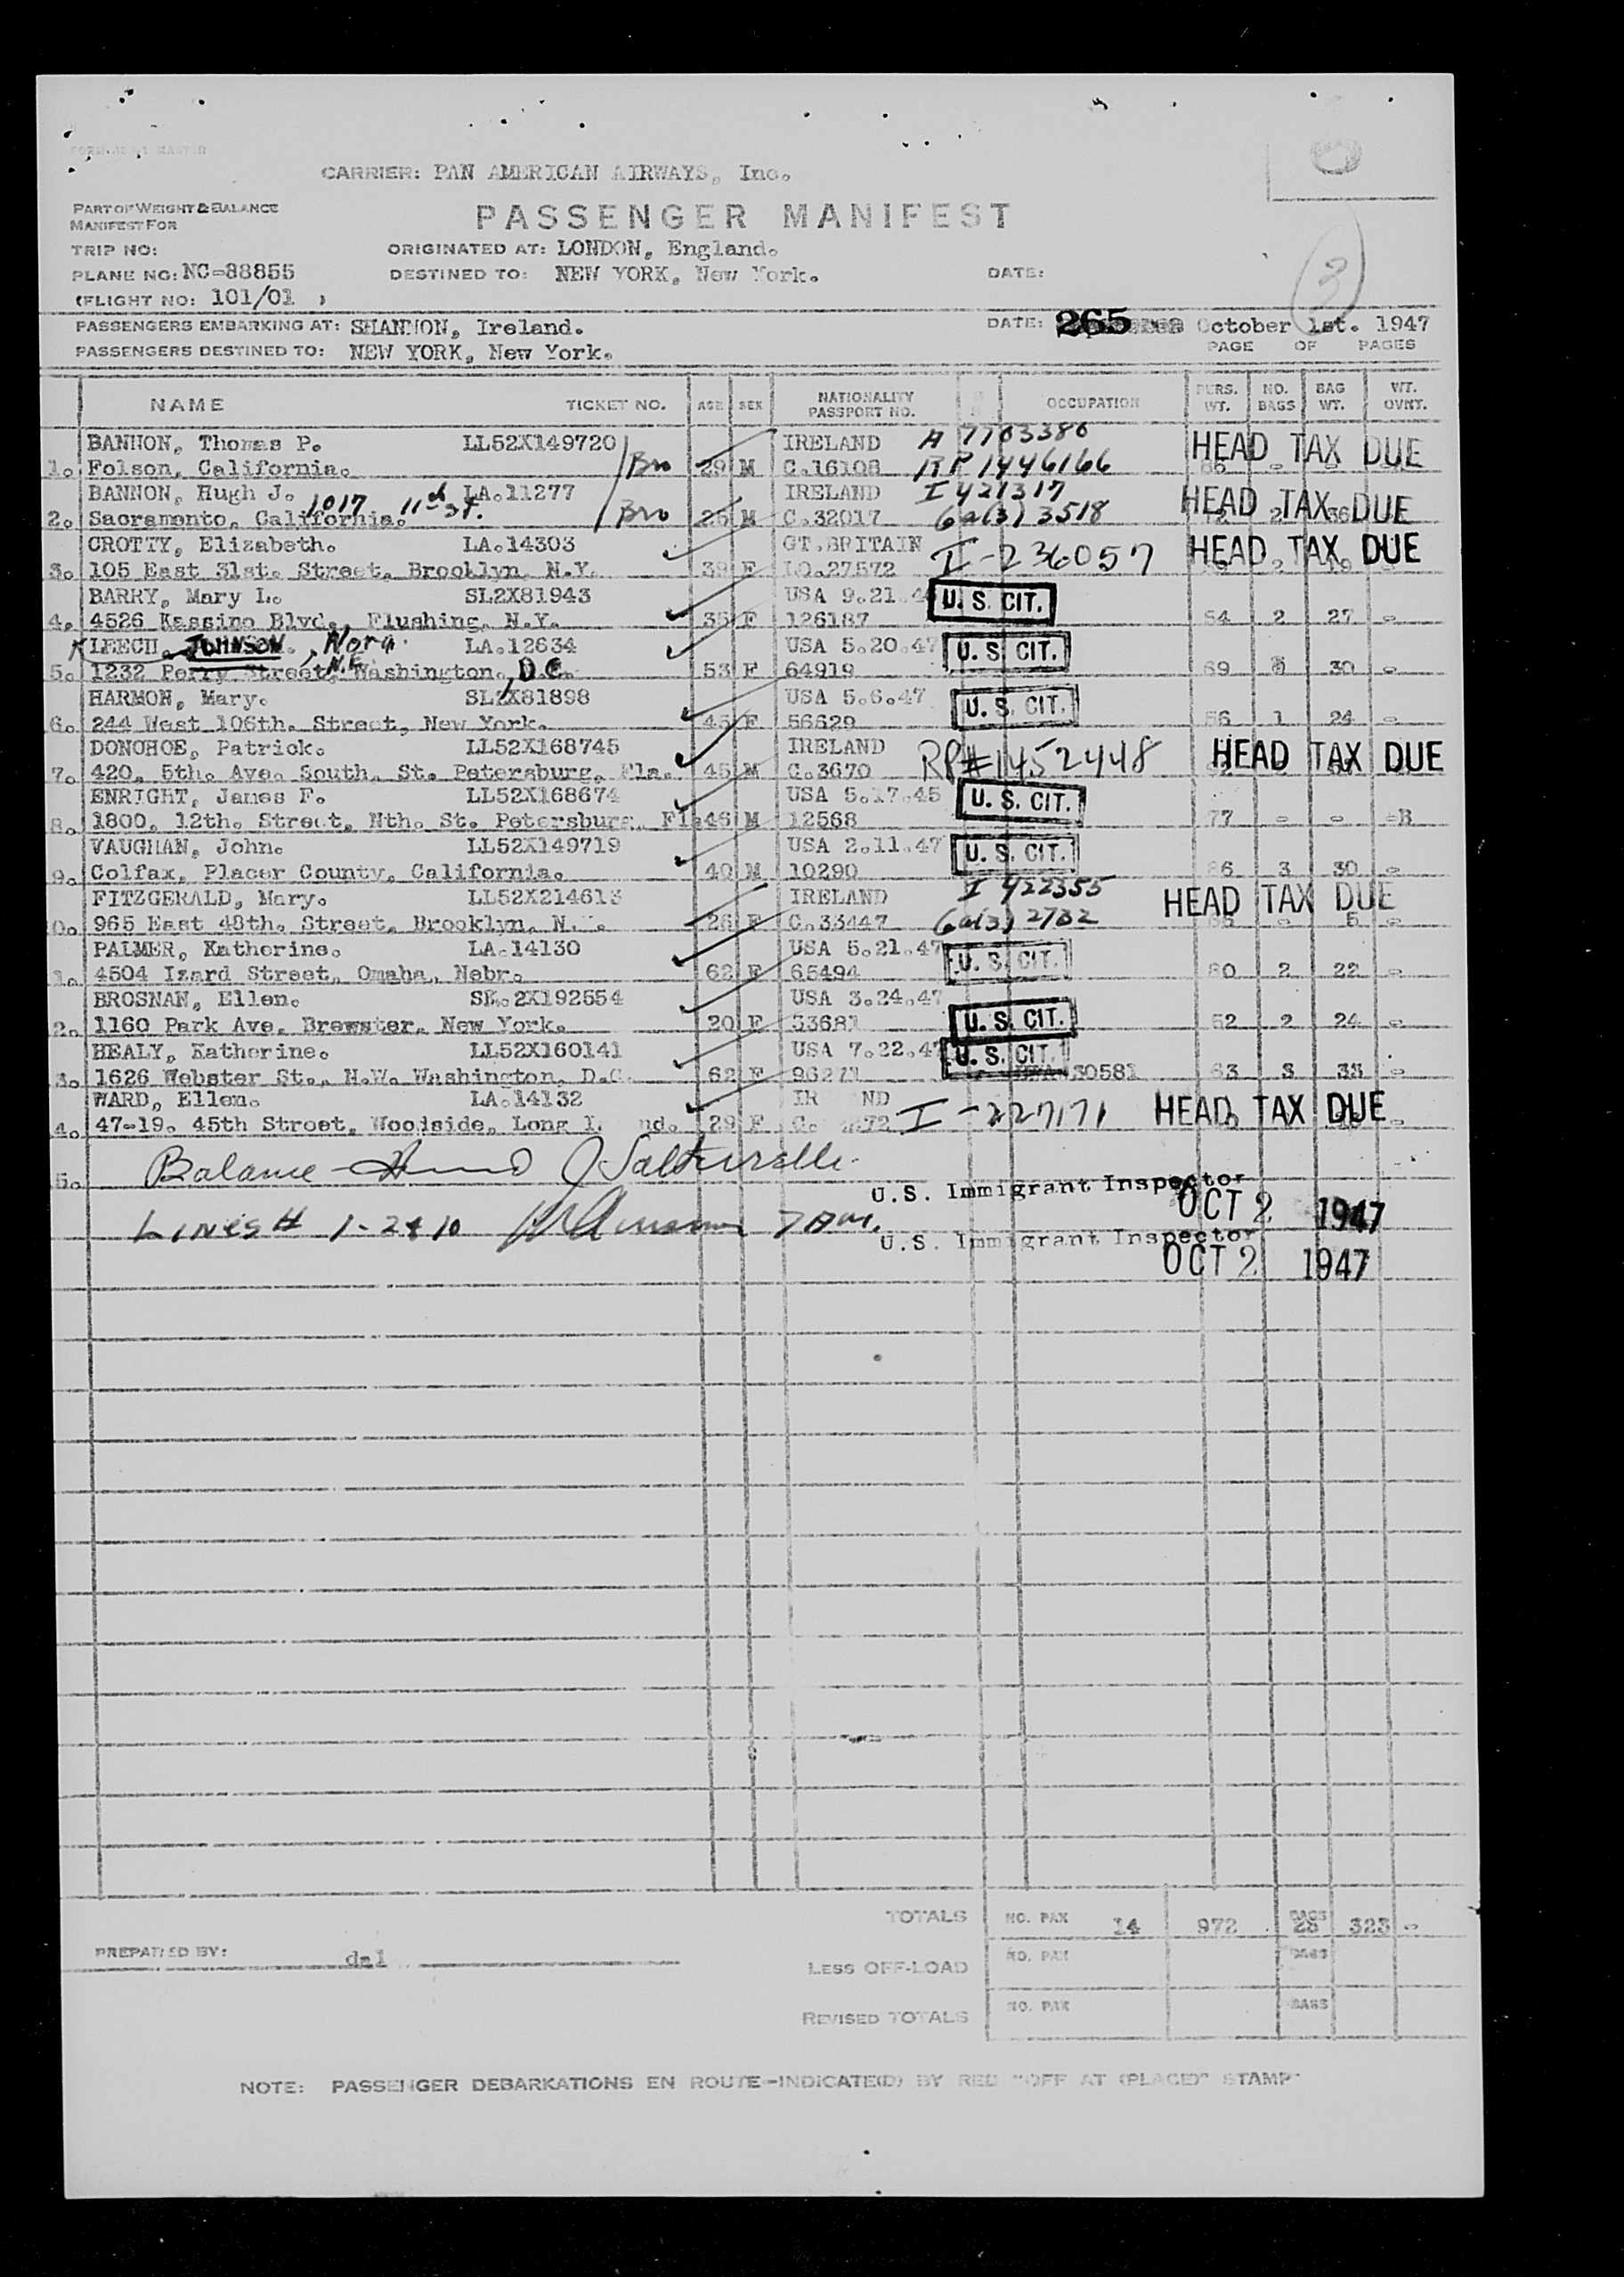 CARRIER: PAN AMERICAN AIRWAYS, Inc.
PART OF WEIGHT & BALANCE
MANIFEST FOR
PASSENGER MANIFEST
TRIP NO:
ORIGINATED AT: LONDON, England.
PLANE NO: NC-88855
DESTINED TO: NEW YORK, New York.
DATE:
(FLIGHT NO: 101/01 )
3
PASSENGERS EMBARKING AT: SHANNON, Ireland.
DATE: 265 October 1st. 1947
PASSENGERS DESTINED TO: NEW YORK, New York.
PAGE OF PAGES
NAME TICKET NO. AGE SEX NATIONALITY PASSPORT NO. OCCUPATION PERS. WT. NO. BAGS BAG WT. WT. OVNT.
BANNON, Thomas P. LL52X149720 IRELAND A 7703386 HEAD TAX DUE
1. Folson, California. Bro 29 M C.16108 RP 1446166
BANNON, Hugh J. LA.11277 IRELAND I 421317 HEAD TAX DUE
1017 11th St.
2. Sacramento, California. Bro 26 M C.32017 6a(3) 3518
CROTTY, Elizabeth. LA.14303 GT.BRITAIN I-236057 HEAD TAX DUE
3. 105 East 31st. Street, Brooklyn, N.Y. 39 F LO.27572
BARRY, Mary L. SL2X81943 USA 9.21. U. S. CIT.
4. 4526 Kassino Blvd., Flushing, N.Y. 35 F 126187 54 2 27 -
LEECH, JOHNSON, Nora. LA.12634 USA 5.20.47 U. S. CIT.
5. 1232 Perry Street, N.E. Washington, D.C. 53 F 64919 69 30 -
HARMON, Mary. SL2X81898 USA 5.6.47 U. S. CIT.
6. 244 West 106th. Street, New York. 45 F 56629 56 1 24 -
DONOHOE, Patrick. LL52X168745 IRELAND RP#1452448 HEAD TAX DUE
7. 420, 5th. Ave. South, St. Petersburg, Fla. 45 M C.3670
ENRIGHT, James F. LL52X168674 USA 5.17.45 U. S. CIT.
8. 1800, 12th. Street, Nth. St. Petersburg, Fl. 46 M 12568 77 - - -
VAUGHAN, John. LL52X149719 USA 2.11.47 U. S. CIT.
9. Colfax, Placer County, California. 40 M 10290 86 3 30 -
FITZGERALD, Mary. LL52X214613 IRELAND I 422355 HEAD TAX DUE
0. 965 East 48th. Street, Brooklyn, N. 26 F C.33447 6a(3) 2782
PALMER, Katherine. LA.14130 USA 5.21.47 U. S. CIT.
1. 4504 Izard Street, Omaha, Nebr. 62 F 65494 80 2 22 -
BROSNAN, Ellen. SL.2X192554 USA 3.24.47
2. 1160 Park Ave. Brewster, New York. 20 F 53681 U. S. CIT. 52 2 24 -
HEALY, Katherine. LL52X160141 USA 7.22.47 U. S. CIT.
3. 1626 Webster St., N.W. Washington, D.C. 62 F 30581 63 3 33 -
WARD, Ellen. LA.14132 I-227171 HEAD TAX DUE
4. 47-19. 45th Street, Woodside, Long 29 F
5. Balance
U.S. Immigrant Inspector
OCT 2 1947
LINES # 1-2 & 10
U.S. Immigrant Inspector
OCT 2 1947
TOTALS NO. PAX 14 972 BAGS 323 -
PREPARED BY: NO. PAX BAGS
LESS OFF-LOAD
REVISED TOTALS NO. PAX BAGS
NOTE: PASSENGER DEBARKATIONS EN ROUTE-INDICATE(D) BY RED "OFF AT (PLACE)" STAMP